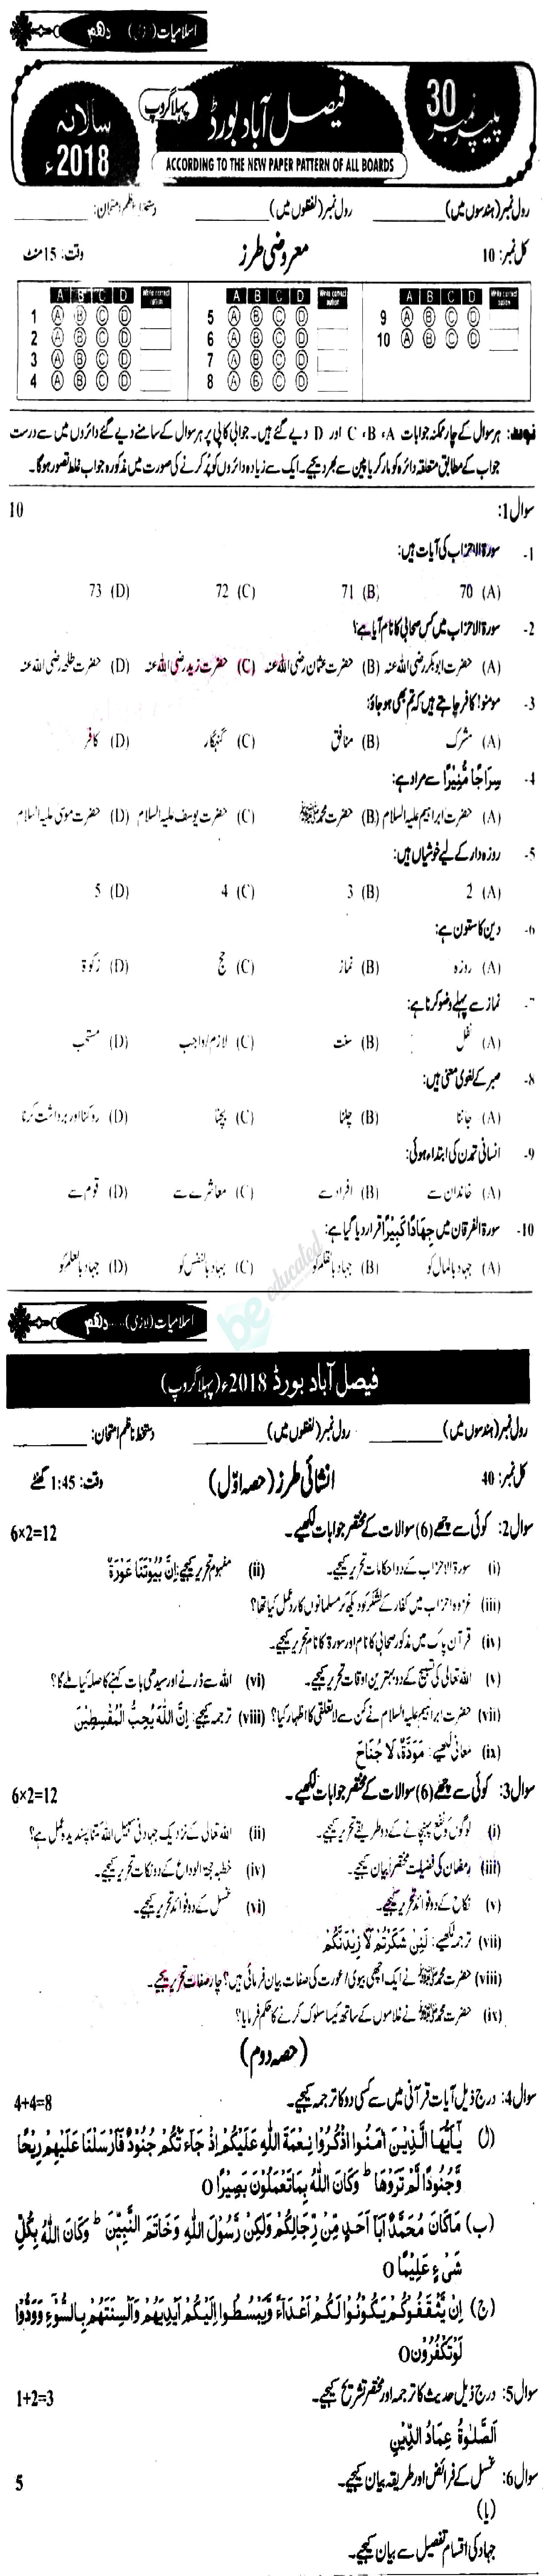 اسلامیات (لازمی) دہم
پیپر نمبر 30
فیصل آباد بورڈ
پہلا گروپ
سالانہ 2018ء
ACCORDING TO THE NEW PAPER PATTERN OF ALL BOARDS
رول نمبر (ہندسوں میں)__________ رول نمبر (لفظوں میں)__________ دستخط ناظم امتحان: __________
کل نمبر: 10 معروضی طرز وقت: 15 منٹ
A B C D Write correct option A B C D Write correct option A B C D Write correct option
1 Ⓐ Ⓑ Ⓒ Ⓓ 5 Ⓐ Ⓑ Ⓒ Ⓓ 9 Ⓐ Ⓑ Ⓒ Ⓓ
2 Ⓐ Ⓑ Ⓒ Ⓓ 6 Ⓐ Ⓑ Ⓒ Ⓓ 10 Ⓐ Ⓑ Ⓒ Ⓓ
3 Ⓐ Ⓑ Ⓒ Ⓓ 7 Ⓐ Ⓑ Ⓒ Ⓓ
4 Ⓐ Ⓑ Ⓒ Ⓓ 8 Ⓐ Ⓑ Ⓒ Ⓓ
نوٹ: ہر سوال کے چار ممکنہ جوابات C ،B ،A اور D دیے گئے ہیں۔ جوابی کاپی پر ہر سوال کے سامنے دیے گئے دائروں میں سے درست
جواب کے مطابق متعلقہ دائرہ کو مارکر یا پین سے بھر دیجیے۔ ایک سے زیادہ دائروں کو پُر کرنے کی صورت میں مذکورہ جواب غلط تصور ہوگا۔
سوال 1: 10
1- سورۃ الاحزاب کی آیات ہیں:
(A) 70 (B) 71 (C) 72 (D) 73
2- سورۃ الاحزاب میں کس صحابی کا نام آیا ہے؟
(A) حضرت ابوبکر رضی اللہ عنہ (B) حضرت عثمان رضی اللہ عنہ (C) حضرت زید رضی اللہ عنہ (D) حضرت طلحہ رضی اللہ عنہ
3- مومنو! کافر چاہتے ہیں کہ تم بھی ہو جاؤ:
(A) مشرک (B) منافق (C) گنہگار (D) کافر
4- سِرَاجًا مُّنِيْرًا سے مراد ہے:
(A) حضرت ابراہیم علیہ السلام (B) حضرت محمد ﷺ (C) حضرت یوسف علیہ السلام (D) حضرت موسیٰ علیہ السلام
5- روزہ دار کے لیے خوشیاں ہیں:
(A) 2 (B) 3 (C) 4 (D) 5
6- دین کا ستون ہے:
(A) روزہ (B) نماز (C) حج (D) زکوٰۃ
7- نماز سے پہلے وضو کرنا ہے:
(A) نفل (B) سنت (C) لازم/واجب (D) مستحب
8- صبر کے لغوی معنی ہیں:
(A) جاننا (B) چلنا (C) بچنا (D) روکنا اور برداشت کرنا
9- انسانی تمدن کی ابتداء ہوئی:
(A) خاندان سے (B) افراد سے (C) معاشرے سے (D) قوم سے
10- سورۃ الفرقان میں جِهَادًا كَبِيْرًا قرار دیا گیا ہے:
(A) جہاد بالمال کو (B) جہاد بالقلم کو (C) جہاد بالنفس کو (D) جہاد بالعلم کو
be educated
اسلامیات (لازمی)..... دہم
فیصل آباد بورڈ 2018ء (پہلا گروپ)
رول نمبر (ہندسوں میں)__________ رول نمبر (لفظوں میں)__________ دستخط ناظم امتحان: __________
کل نمبر: 40 انشائی طرز (حصہ اوّل) وقت: 1:45 گھنٹے
سوال 2: کوئی سے چھے (6) سوالات کے مختصر جوابات لکھیے۔ 6×2=12
(i) سورۃ الاحزاب کے دو احکامات تحریر کیجیے۔ (ii) مفہوم تحریر کیجیے: اِنَّ بُيُوْتَنَا عَوْرَةٌ
(iii) غزوہ احزاب میں کفار کے لشکر کو دیکھ کر مسلمانوں کا ردِعمل کیا تھا؟
(iv) قرآن پاک میں مذکور صحابی کا نام اور سورۃ کا نام تحریر کیجیے۔
(v) اللہ تعالیٰ کی تسبیح کے دو بہترین اوقات تحریر کیجیے۔ (vi) اللہ سے ڈرنے اور سیدھی بات کہنے کا صلہ کیا ملے گا؟
(vii) حضرت ابراہیم علیہ السلام نے کن سے لاتعلقی کا اظہار کیا؟ (viii) ترجمہ کیجیے: اِنَّ اللّٰهَ يُحِبُّ الْمُقْسِطِيْنَ
(ix) معانی لکھیے: مَوَدَّةٌ، لَا جُنَاحَ
سوال 3: کوئی سے چھے (6) سوالات کے مختصر جوابات لکھیے۔ 6×2=12
(i) لوگوں کو نفع پہنچانے کے دو طریقے تحریر کیجیے۔ (ii) اللہ تعالیٰ کے نزدیک جہاد فی سبیل اللہ کتنا پسندیدہ عمل ہے؟
(iii) رمضان کی فضیلت مختصراً بیان کیجیے۔ (iv) خطبہ حجۃ الوداع کے دو نکات تحریر کیجیے۔
(v) نکاح کے دو فوائد تحریر کیجیے۔ (vi) غسل کے دو فوائد تحریر کیجیے۔
(vii) ترجمہ لکھیے: لَئِنْ شَكَرْتُمْ لَاَزِيْدَنَّكُمْ
(viii) حضرت محمد ﷺ نے ایک اچھی بیوی/عورت کی صفات بیان فرمائی ہیں؟ چار صفات تحریر کیجیے۔
(ix) حضرت محمد ﷺ نے غلاموں کے ساتھ کیسا سلوک کرنے کا حکم فرمایا؟
(حصہ دوم)
سوال 4: درج ذیل آیات قرآنی میں سے کسی دو کا ترجمہ کیجیے۔ 4+4=8
(ا) يٰٓاَيُّهَا الَّذِيْنَ اٰمَنُوا اذْكُرُوْا نِعْمَةَ اللّٰهِ عَلَيْكُمْ اِذْ جَآءَتْكُمْ جُنُوْدٌ فَاَرْسَلْنَا عَلَيْهِمْ رِيْحًا
وَّجُنُوْدًا لَّمْ تَرَوْهَا ؕ وَكَانَ اللّٰهُ بِمَا تَعْمَلُوْنَ بَصِيْرًا O
(ب) مَا كَانَ مُحَمَّدٌ اَبَآ اَحَدٍ مِّنْ رِّجَالِكُمْ وَلٰكِنْ رَّسُوْلَ اللّٰهِ وَخَاتَمَ النَّبِيّٖنَ ؕ وَكَانَ اللّٰهُ بِكُلِّ
شَيْءٍ عَلِيْمًا O
(ج) اِنْ يَّثْقَفُوْكُمْ يَكُوْنُوْا لَكُمْ اَعْدَآءً وَّيَبْسُطُوْٓا اِلَيْكُمْ اَيْدِيَهُمْ وَاَلْسِنَتَهُمْ بِالسُّوْٓءِ وَوَدُّوْا
لَوْ تَكْفُرُوْنَ O
سوال 5: درج ذیل حدیث کا ترجمہ اور مختصر تشریح کیجیے۔ 1+2=3
اَلصَّلٰوةُ عِمَادُ الدِّيْنِ
سوال 6: غسل کے فرائض اور طریقہ بیان کیجیے۔ 5
(یا)
جہاد کی اقسام تفصیل سے بیان کیجیے۔